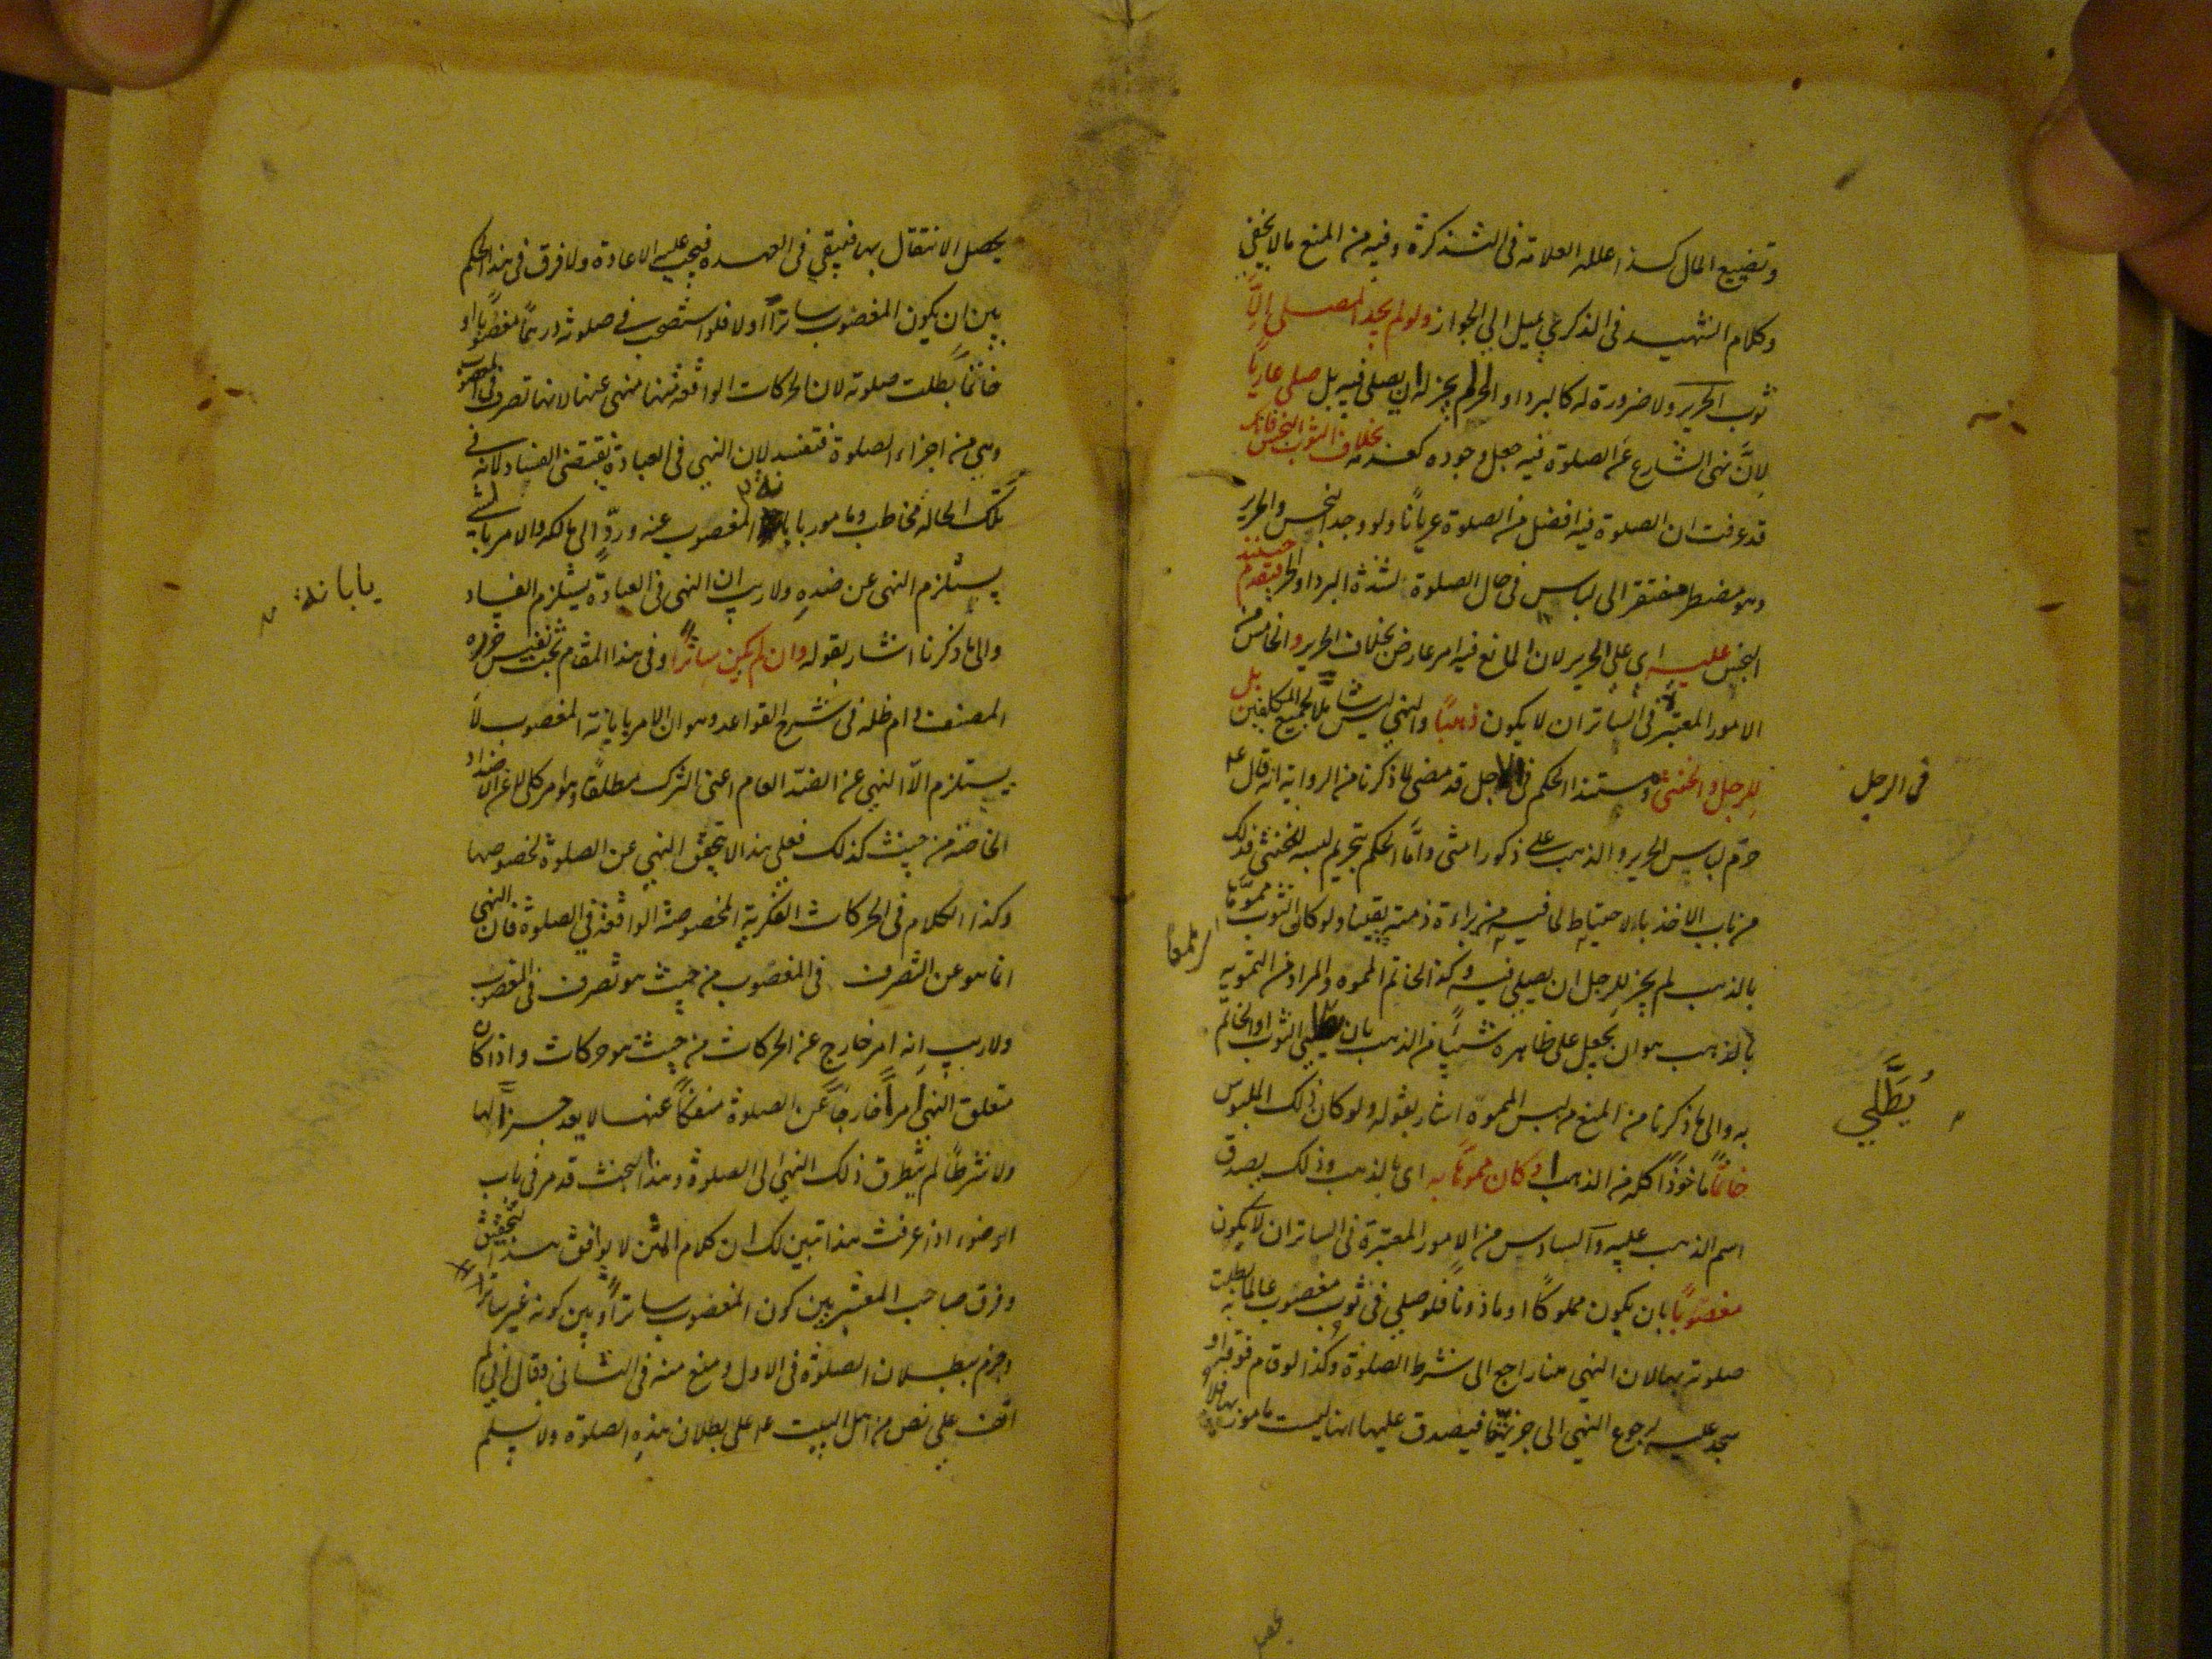 وتضييع المال كذا علله العلامة فى التذكرة وفيه من المنع ما لا يخفى
وكلام الشهيد فى الذكرى يميل الى الجواز ولو لم يجد المصلى الّا
ثوب الحرير ولا ضرورة له كالبرد او الحر لم يجز له ان يصلى فيه بل صلى عاريًا
لانَّ نهى الشارع عن الصلوة فيه جعل وجوده كعدمه بخلاف الثوب النجس فانك
قد عرفت ان الصلوة فيه افضل من الصلوة عريانًا ولو وجد النجس والحرير
وهو مضطر مفتقر الى لباس فى حال الصلوة لشدة البرد او الحر فيقدم حينئذ
النجس عليه اى على الحرير لان المانع فيه امر عارض بخلاف الحرير والخامس من
الامور المعتبرة فى الساتر ان لا يكون ذهبًا والنهى ليس شاملًا لجميع المكلفين بل
للرجل والخنثى ومستند الحكم فى الرجل قد مضى لما ذكرنا من الرواية انه قال ع
حرّم لباس الحرير والذهب على ذكور امتى وامّا الحكم بتحريم لبسه للخنثى فذلك
من باب الاخذ بالاحتياط لما فيه من براءة ذمته يقينا ولو كان الثوب مموّهًا
بالذهب لم يجز للرجل ان يصلى فيه وكذا الخاتم المموه والمراد من التمويه
بالذهب هو ان يجعل على ظاهره شيئًا من الذهب بان يطلى الثوب او الخاتم
به والى ما ذكرنا من المنع من لبس المموه اشار بقوله ولو كان ذلك الملبوس
خاتمًا ماخوذًا كله من الذهب او كان مموهًا به اى بالذهب وذلك يصدق
اسم الذهب عليه والسادس من الامور المعتبرة فى الساتر ان لا يكون
مغصوبًا بان يكون مملوكًا او ماذونًا فلو صلى فى ثوب مغصوب عالمًا به بطلت
صلوته بها لان النهى هنا راجع الى شرط الصلوة وكذا لو قام فوقه او
سجد عليه لرجوع النهى الى جزئها فيصدق عليها انها ليست مامور بها فلا
فى الرجل
يُطَّلِي
يحصل
يحصل الانتقال بها فيبقى فى العهدة فيجب عليه الاعادة ولا فرق فى هذا الحكم
بين ان يكون المغصوب ساترًا او لا فلو استصحب فى صلوته درهمًا مغصوبًا او
خاتمًا بطلت صلوته لان الحركات الواقعة فيها منهى عنها لانها تصرف فى المغصوب
وهى من اجزاء الصلوة فتفسد لان النهى فى العبادة يقتضى الفساد ولانه فى
تلك الحالة مخاطب ومامور بابانة المغصوب عنه وردّه الى مالكه والامر بالشئ
يستلزم النهى عن ضده ولا ريب ان النهى فى العبادة يستلزم الفساد
والى ما ذكرنا اشار بقوله وان لم يكن ساترًا وفى هذا المقام بحث نفيس حرره
المصنف دام ظله فى شرح القواعد وهو ان الامر بابانة المغصوب لا
يستلزم الّا النهى عن الضدّ العام اعنى الترك مطلقًا وهو امر كلى لا عن الاضداد
الخاصّة من حيث كذلك فعلى هذا لا يتحقق النهى عن الصلوة لخصوصها
وكذا الكلام فى الحركات الفكرية المخصوصة الواقعة فى الصلوة فان النهى
انما هو عن التصرف فى المغصوب من حيث هو تصرف فى المغصوب
ولا ريب انه امر خارج عن الحركات من حيث هو حركات واذا كان
متعلق النهى امرًا خارجًا عن الصلوة منفكًا عنها لا يعد جزءًا لها
ولا شرطًا لم يتطرق ذلك النهى الى الصلوة وهذا البحث قد مر فى باب
الوضوء اذا عرفت هذا تبين لك ان كلام المتن لا يوافق هذا التحقيق
وفرق صاحب المعتبر بين كون المغصوب ساترًا وبين كونه غير ساتر
وجزم ببطلان الصلوة فى الاول ومنع منه فى الثانى وقال انى لم
اقف على نص من اهل البيت ع على بطلان هذه الصلوة ولا يسلم
بابانة